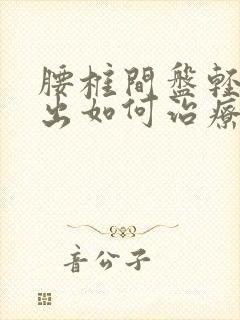 腰椎間盤輕
出如何治療
音公子